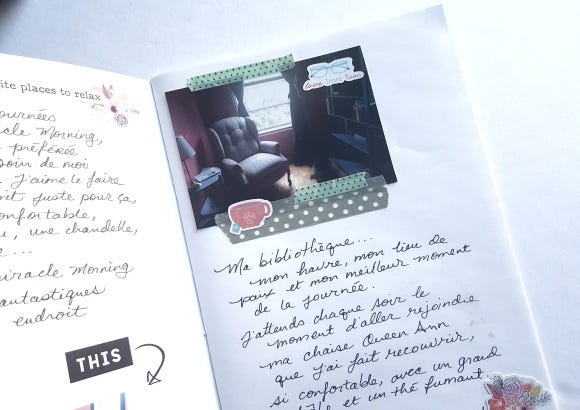 ite places to relax
ournées
acle Morning,
préférée
soin de moi
J'aime le faire
oit juste pour ça,
onfortable,
, une chandelle,
...
iracle Morning
antastiques
endroit
THIS
love love love
Ma bibliothèque...
mon havre, mon lieu de
paix et mon meilleur moment
de la journée.
J'attends chaque soir le
moment d'aller rejoindre
ma chaise Queen Ann
que j'ai fait recouvrir,
si confortable, avec un grand
et un thé fumant